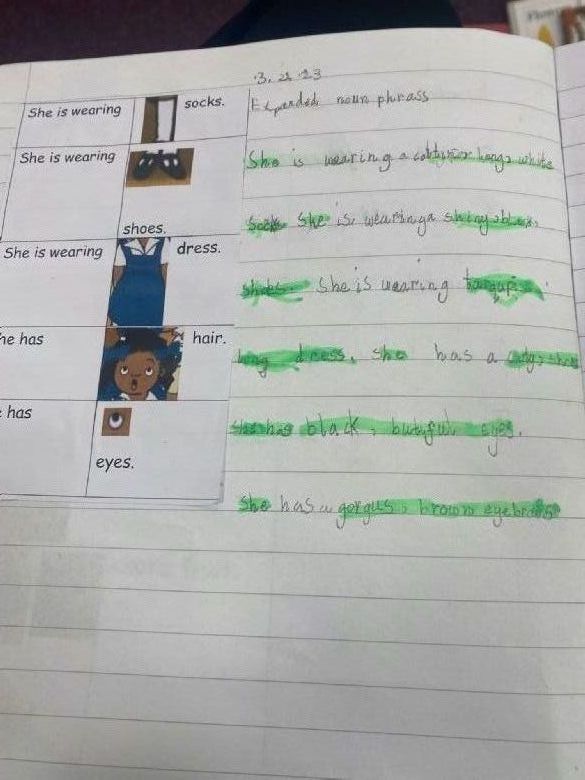 3. 21 23
She is wearing socks.
Expanded noun phrass
She is wearing
shoes.
She is wearing dress.
he has hair.
has
eyes.
She is wearing a long, white
socks She is wearing a shiny, black,
shoes. She is wearing
long dress. she has a
she has black, butyful eyes.
She has a gorgus, brown